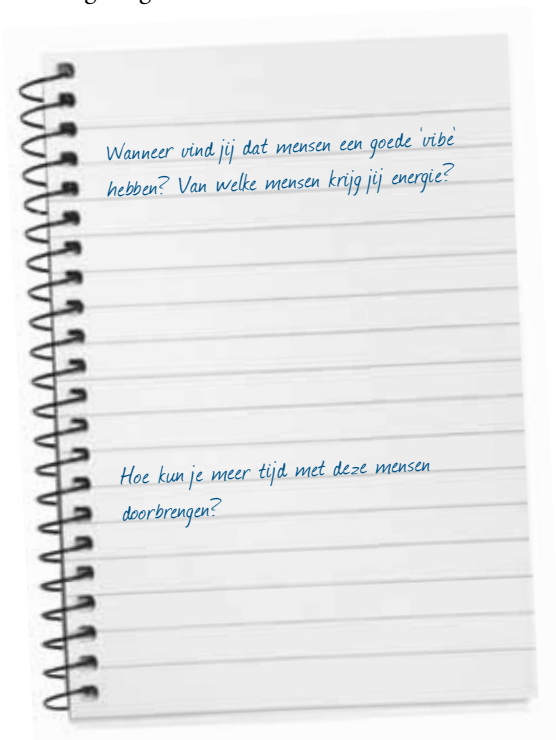 Wanneer vind jij dat mensen een goede 'vibe'
hebben? Van welke mensen krijg jij energie?
Hoe kun je meer tijd met deze mensen
doorbrengen?